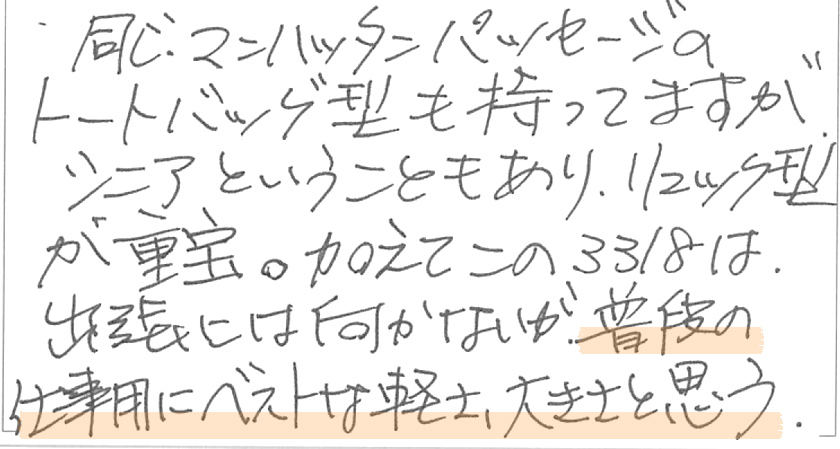 同じ.マンハッタンパッセージの
トートバッグ型も持ってますが.
シニアということもあり.リュック型
が重宝。加えてこの3318は.
出張には向かないが.普段の
仕事用にベストな軽さ、大きさと思う.